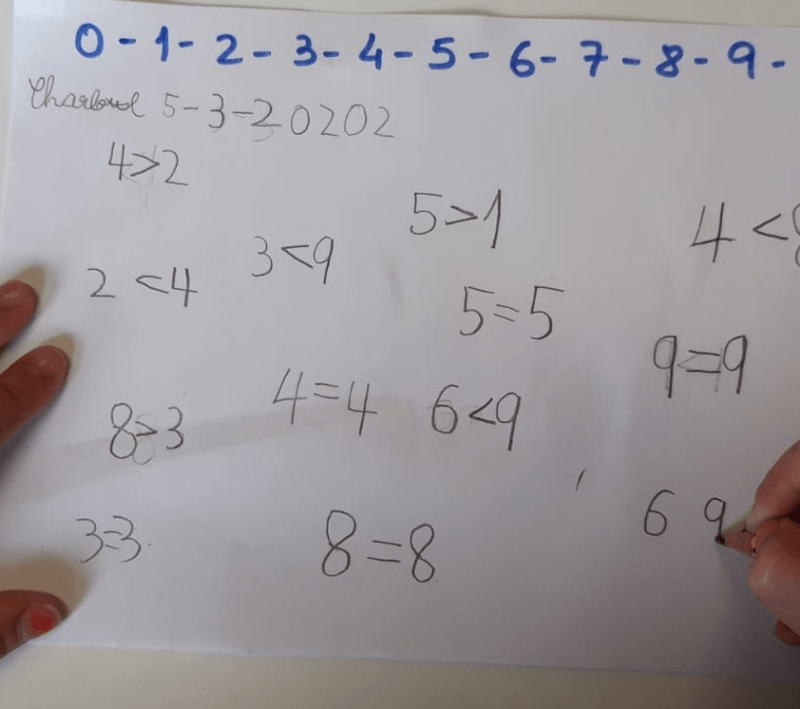 0 - 1 - 2 - 3 - 4 - 5 - 6 - 7 - 8 - 9 -
5-3-20202
4>2
5>1
4<8
2<4
3<9
5=5
9=9
8>3
4=4
6<9
3=3
8=8
6 9